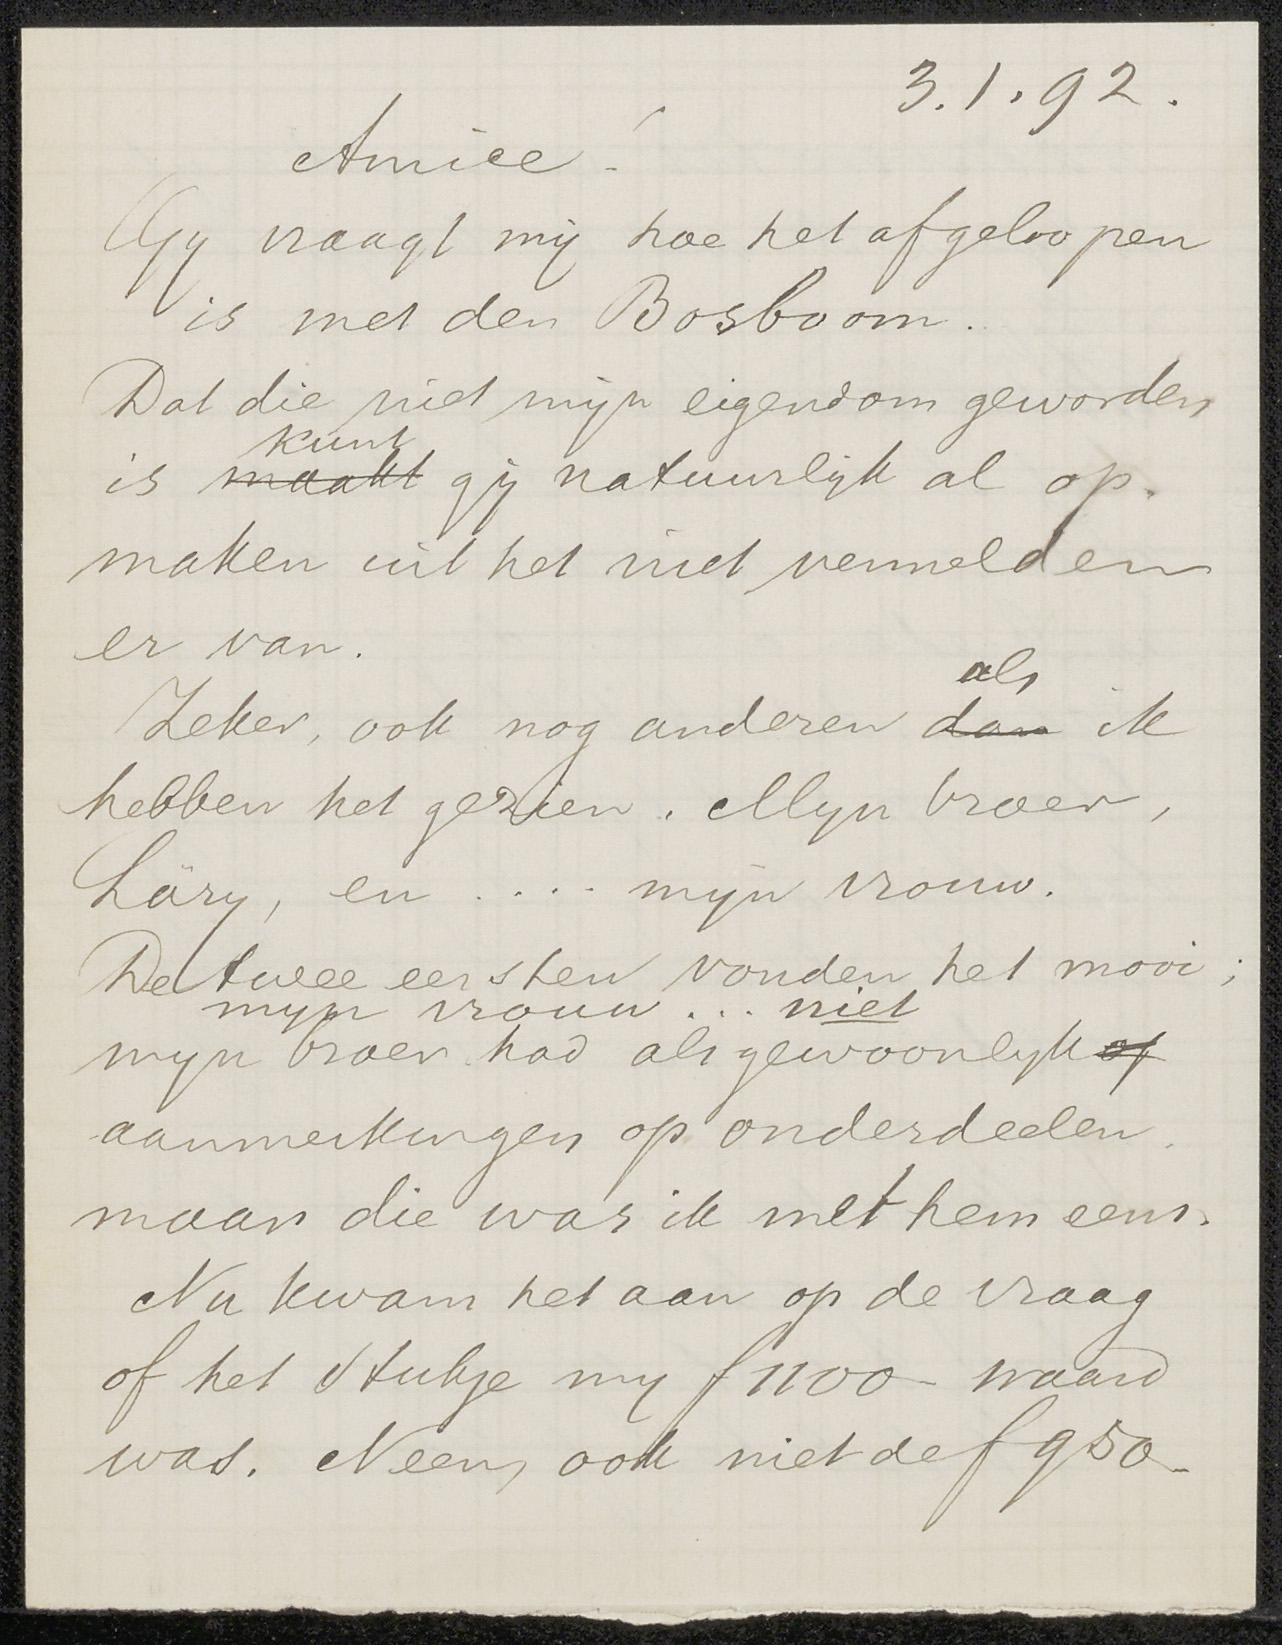 3.1.92.
Amice!
Gy vraagt mij hoe het afgeloopen
is met den Bosboom.
Dat die niet mijn eigendom geworden
kunt
is maakt gij natuurlijk al op-
maken uit het niet vermelden
er van.
als
Zeker, ook nog anderen dan ik
hebben het gezien. Myn broer,
Läry, en .... mijn vrouw.
De twee eersten vonden het mooi;
myn vrouw ... niet
myn broer had als gewoonlyk op
aanmerkingen op onderdeelen.
maar die was ik met hem eens.
Nu kwam het aan op de vraag
of het stukje my f 1100- waard
was. Neen, ook niet de f 950-